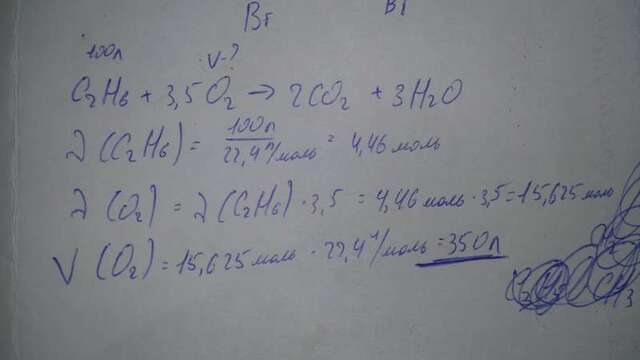 Br Br
100л V-?
C2H6 + 3,5O2 → 2CO2 + 3H2O
ν(C2H6) = 100л / 22,4л/моль = 4,46 моль
ν(O2) = ν(C2H6)·3,5 = 4,46 моль·3,5 = 15,625 моль
V(O2) = 15,625 моль · 22,4л/моль = 350л